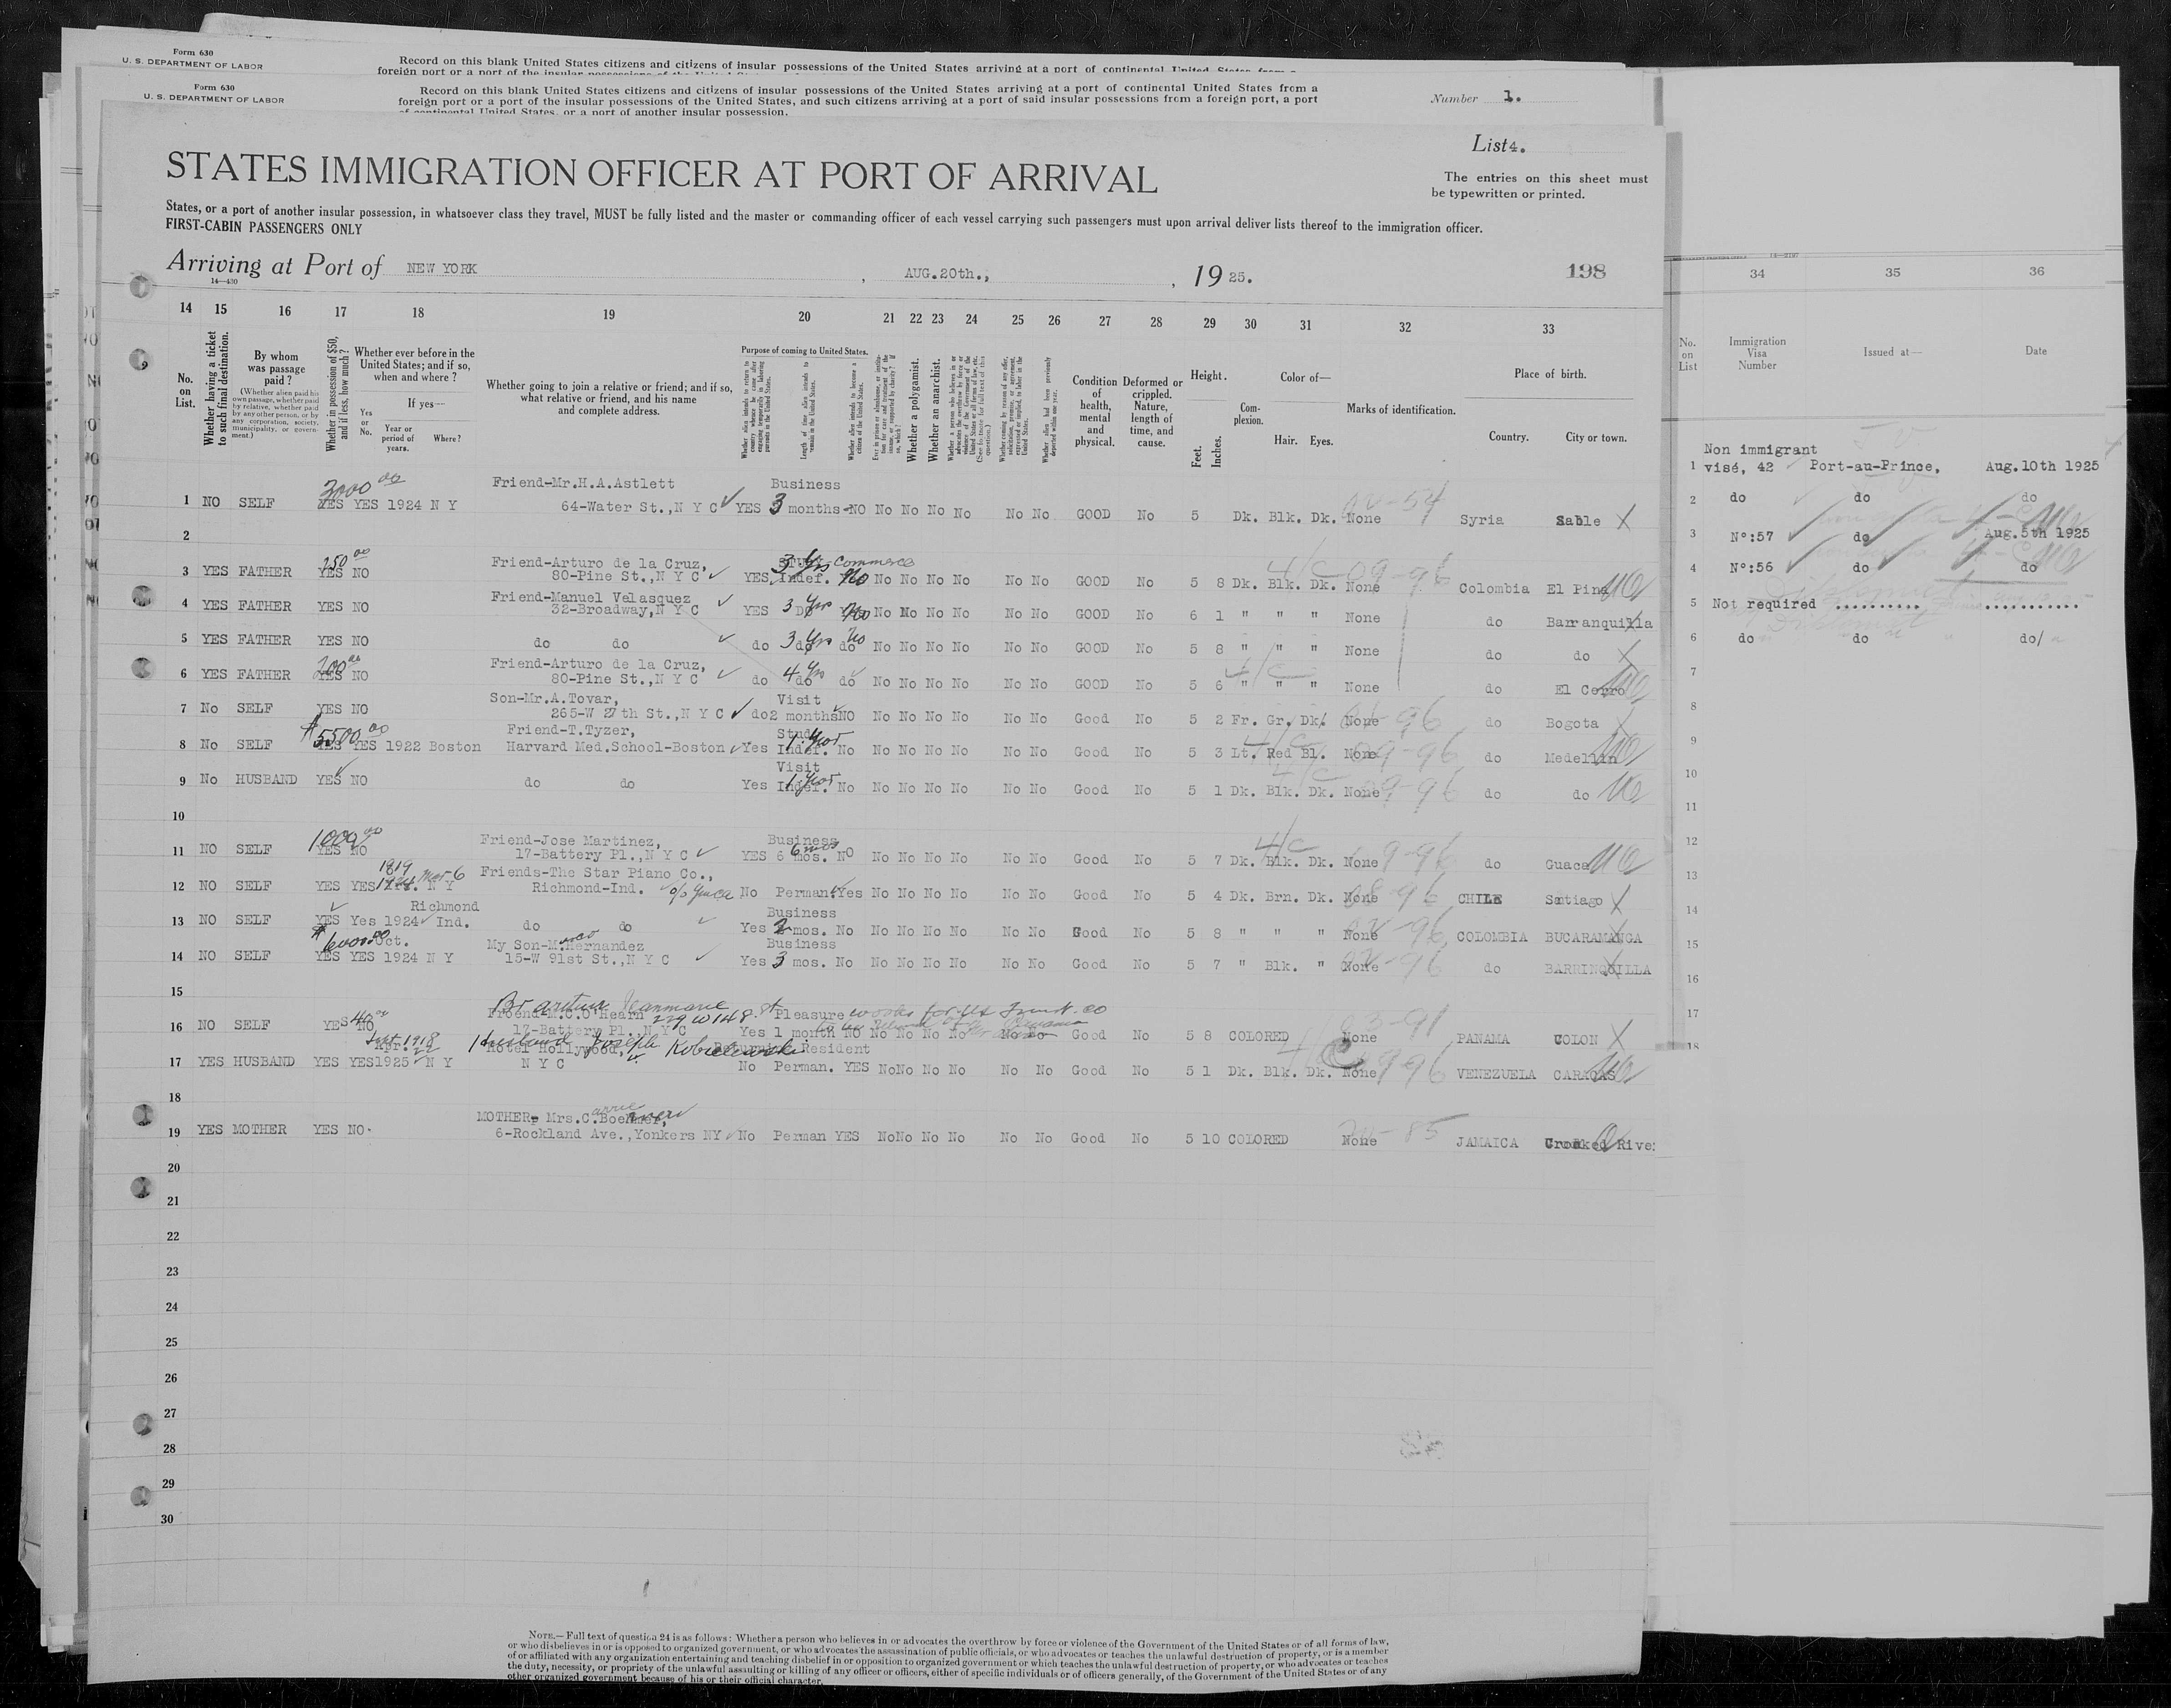 Form 630
U. S. DEPARTMENT OF LABOR
Record on this blank United States citizens and citizens of insular possessions of the United States arriving at a port of continental United States from a
foreign port or a port of the insular possessions of the United States
Form 630
U. S. DEPARTMENT OF LABOR
Record on this blank United States citizens and citizens of insular possessions of the United States arriving at a port of continental United States from a
foreign port or a port of the insular possessions of the United States, and such citizens arriving at a port of said insular possessions from a foreign port, a port
of continental United States, or a port of another insular possession.
Number 1.
List 4.
STATES IMMIGRATION OFFICER AT PORT OF ARRIVAL
The entries on this sheet must
be typewritten or printed.
States, or a port of another insular possession, in whatsoever class they travel, MUST be fully listed and the master or commanding officer of each vessel carrying such passengers must upon arrival deliver lists thereof to the immigration officer.
FIRST-CABIN PASSENGERS ONLY
Arriving at Port of NEW YORK , AUG.20th., , 19 25.
198
14—430
14 15 16 17 18 19 20 21 22 23 24 25 26 27 28 29 30 31 32 33
34 35 36
No. on List.
Whether having a ticket to such final destination.
By whom was passage paid?
(Whether alien paid his own passage, whether paid by relative, whether paid by any other person, or by any corporation, society, municipality, or government.)
Whether in possession of $50, and if less, how much?
Whether ever before in the United States; and if so, when and where?
Yes or No.
If yes—
Year or period of years.
Where?
Whether going to join a relative or friend; and if so, what relative or friend, and his name and complete address.
Purpose of coming to United States.
Whether alien intends to return to country whence he came after engaging temporarily in laboring pursuits in the United States.
Length of time alien intends to remain in the United States.
Whether alien intends to become a citizen of the United States.
Whether a polygamist.
Whether an anarchist.
Condition of health, mental and physical.
Deformed or crippled. Nature, length of time, and cause.
Height.
Feet.
Inches.
Complexion.
Color of—
Hair. Eyes.
Marks of identification.
Place of birth.
Country.
City or town.
No. on List
Immigration Visa Number
Issued at—
Date
Friend-Mr.H.A.Astlett Business
1 NO SELF 3000 00 YES YES 1924 N Y 64-Water St.,N Y C YES 3 months-NO No No No No No No GOOD No 5 Dk. Blk. Dk. None 54 Syria Sable X
2
250 00 Friend-Arturo de la Cruz, 3 Yrs Commerce
3 YES FATHER YES NO 80-Pine St.,N Y C YES Indef. No No No No No No No GOOD No 5 8 Dk. Blk. Dk. None 09-96 Colombia El Pino
Friend-Manuel Velasquez
4 YES FATHER YES NO 32-Broadway,N Y C YES 3 Yrs No No No No No No No GOOD No 6 1 " " " None do Barranquilla
5 YES FATHER YES NO do do do 3 Yrs No No No No No No No GOOD No 5 8 " " " None do do X
200 00 Friend-Arturo de la Cruz,
6 YES FATHER YES NO 80-Pine St.,N Y C do 4 Yrs do No No No No No No GOOD No 5 6 " " " None do El Cerro
Son-Mr.A.Tovar, Visit
7 No SELF YES NO 265-W 27th St.,N Y C do 2 months NO No No No No No No Good No 5 2 Fr. Gr. Dk. None do Bogota
$5500 00 Friend-T.Tyzer, Study
8 No SELF YES YES 1922 Boston Harvard Med.School-Boston Yes Indef. 1 year No No No No No No No Good No 5 3 Lt. Red Bl. None 09-96 do Medellin
Visit
9 No HUSBAND YES NO do do Yes Indef. 1 year No No No No No No No Good No 5 1 Dk. Blk. Dk. None 9-96 do do
10
1000 00 Friend-Jose Martinez, Business
11 NO SELF YES NO 17-Battery Pl.,N Y C YES 6 mos. 6 mos NO No No No No No No Good No 5 7 Dk. Blk. Dk. None 9-96 do Guaca
1919 Mar-6 Friends-The Star Piano Co.,
12 NO SELF YES YES N Y Richmond-Ind. No Perman. Yes No No No No No No Good No 5 4 Dk. Brn. Dk. None 96 CHILE Satiago X
Richmond Business
13 NO SELF YES Yes 1924 Ind. do do Yes 2 mos. No No No No No No No Good No 5 8 " " " None 96 COLOMBIA BUCARAMANGA
$6000.00 Oct. My Son-M.Hernandez Business
14 NO SELF YES YES 1924 N Y 15-W 91st St.,N Y C Yes 3 mos. No No No No No No No Good No 5 7 " Blk. " None 96 do BARRINQUILLA
15
Friend-M.C.O'Hearn 229 W 148 St Pleasure works for
16 NO SELF YES 40 00 NO 17-Battery Pl.,N Y C Yes 1 month NO No No No No No No Good No 5 8 COLORED None PANAMA COLON X
Sept. 1918 Apr. Husband Joseph Hotel Hollywood, Returning Resident
17 YES HUSBAND YES YES 1925 N Y N Y C No Perman. YES No No No No No No Good No 5 1 Dk. Blk. Dk. None 996 VENEZUELA CARACAS
18
MOTHER, Mrs.C.Boehmer,
19 YES MOTHER YES NO. 6-Rockland Ave.,Yonkers NY No Perman YES No No No No No No Good No 5 10 COLORED None 85 JAMAICA Crooked River
20
21
22
23
24
25
26
27
28
29
30
1 Non immigrant visé, 42 Port-au-Prince, Aug.10th 1925
2 do do do
3 Nº:57 do Aug.5th 1925
4 Nº:56 do do
5 Not required .......... ...........
6 do do do/
7
8
9
10
11
12
13
14
15
16
17
18
NOTE.—Full text of question 24 is as follows: Whether a person who believes in or advocates the overthrow by force or violence of the Government of the United States or of all forms of law,
or who disbelieves in or is opposed to organized government, or who advocates the assassination of public officials, or who advocates or teaches the unlawful destruction of property, or is a member
of or affiliated with any organization entertaining and teaching disbelief in or opposition to organized government or which teaches the unlawful destruction of property, or who advocates or teaches
the duty, necessity, or propriety of the unlawful assaulting or killing of any officer or officers, either of specific individuals or of officers generally, of the Government of the United States or of any
other organized government because of his or their official character.